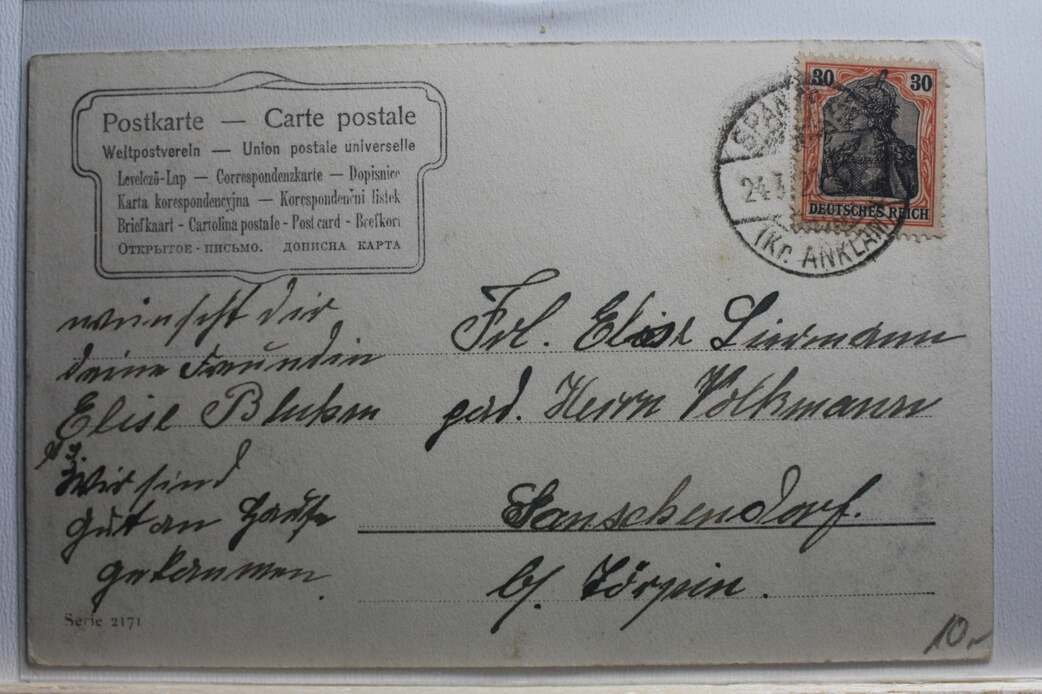 Postkarte — Carte postale
Weltpostverein — Union postale universelle
Levelező-Lap — Correspondenzkarte — Dopisnice
Karta korespondencyjna — Korespondenční listek
Briefkaart - Cartolina postale - Post card - Brefkort
Открытое - письмо. дописна карта
30 30
DEUTSCHES REICH
SPAN
24.7.
(Kr. ANKLAM)
wünscht dir
deine Freundin
Elise
Wir sind
gut an Hause
gekommen.
Frl. Elise Liermann
pad. Herrn Volkmann
Ganschendorf.
b/ Törpin.
Serie 2171
10,-